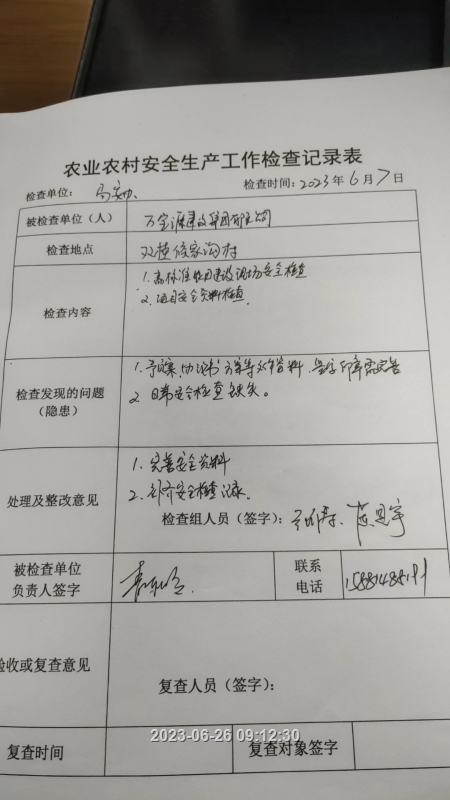 农业农村安全生产工作检查记录表
检查单位:
检查时间:2023年6月7日
被检查单位(人)
检查地点
双桂侯家沟村
检查内容
1.高标准农田建设现场安全检查
2.项目安全资料检查.
检查发现的问题
(隐患)
1.预案,协议书 方案等 资料,
2.日常安全检查缺失。
处理及整改意见
1.完善安全资料
2.补齐安全检查记录.
检查组人员(签字):
被检查单位
负责人签字
联系
电话
验收或复查意见
复查人员(签字):
2023-06-26 09:12:30
复查时间
复查对象签字